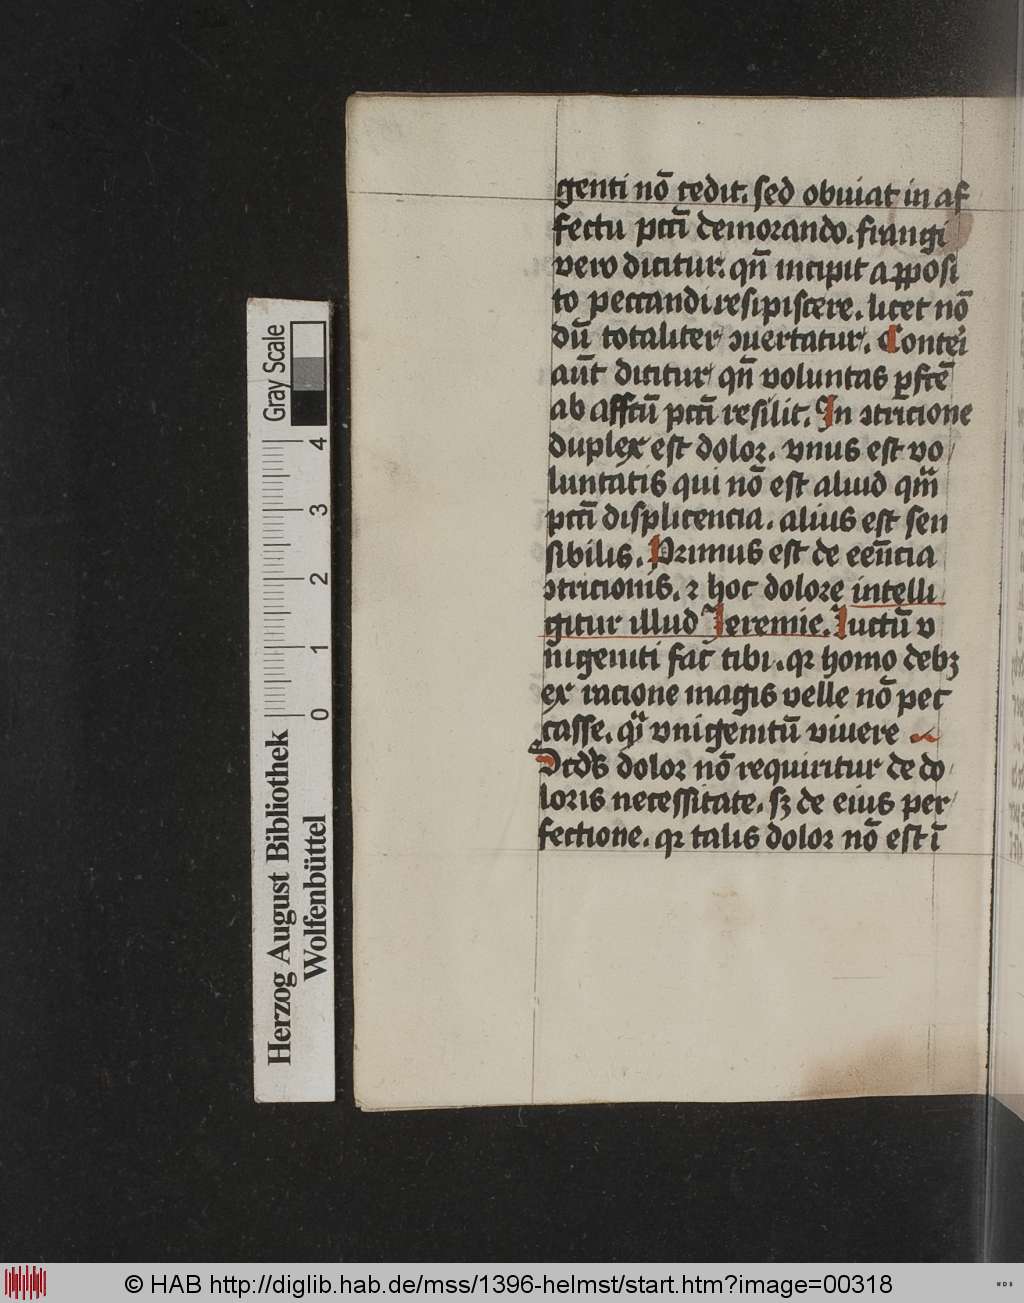 genti nō cedit. sed obuiat in af
fectu pctī demorando. frangi
vero dicitur. qn̄ incipit a ꝓposi
to peccandi resipiscere. licet nō
dū totaliter ꝯuertatur. Conteri
aūt dicitur qn̄ voluntas ꝑfcē
ab affctū pctī resilit. In ꝯtricione
duplex est dolor. vnus est vo
luntatis qui nō est aliud qm̄
pctī displicencia. alius est sen
sibilis. Primus est de eēncia
ꝯtricionis. ⁊ hoc dolore intelli
gitur illud Jeremie. luctū v
nigeniti fac tibi. qr homo debꝫ
ex racione magis velle nō pec
casse. qͥ vnigenitū viuere
Scds dolor nō requiritur de do
loris necessitate. sꝫ de eius per
fectione. qr talis dolor nō est ī
Gray Scale
4 3 2 1 0
Herzog August Bibliothek
Wolfenbüttel
© HAB http://diglib.hab.de/mss/1396-helmst/start.htm?image=00318
WDB